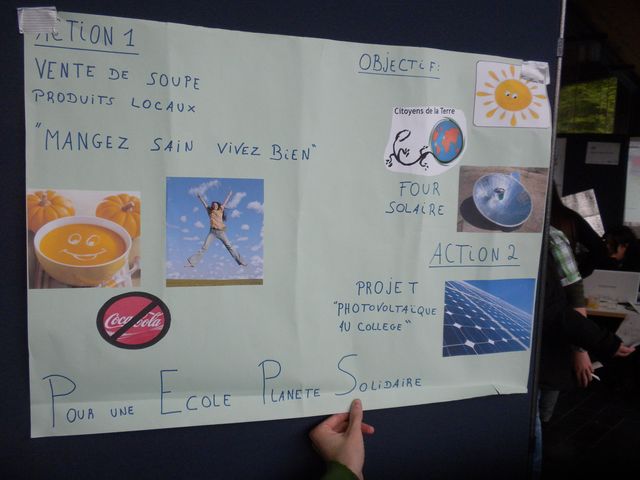 ACTION 1
VENTE DE SOUPE
PRODUITS LOCAUX
"MANGEZ SAIN VIVEZ BIEN"
Coca-Cola
OBJECTIF:
Citoyens de la Terre
FOUR
SOLAIRE
ACTION 2
PROJET
"PHOTOVOLTAÏQUE
AU COLLEGE"
POUR UNE ECOLE PLANETE SOLIDAIRE